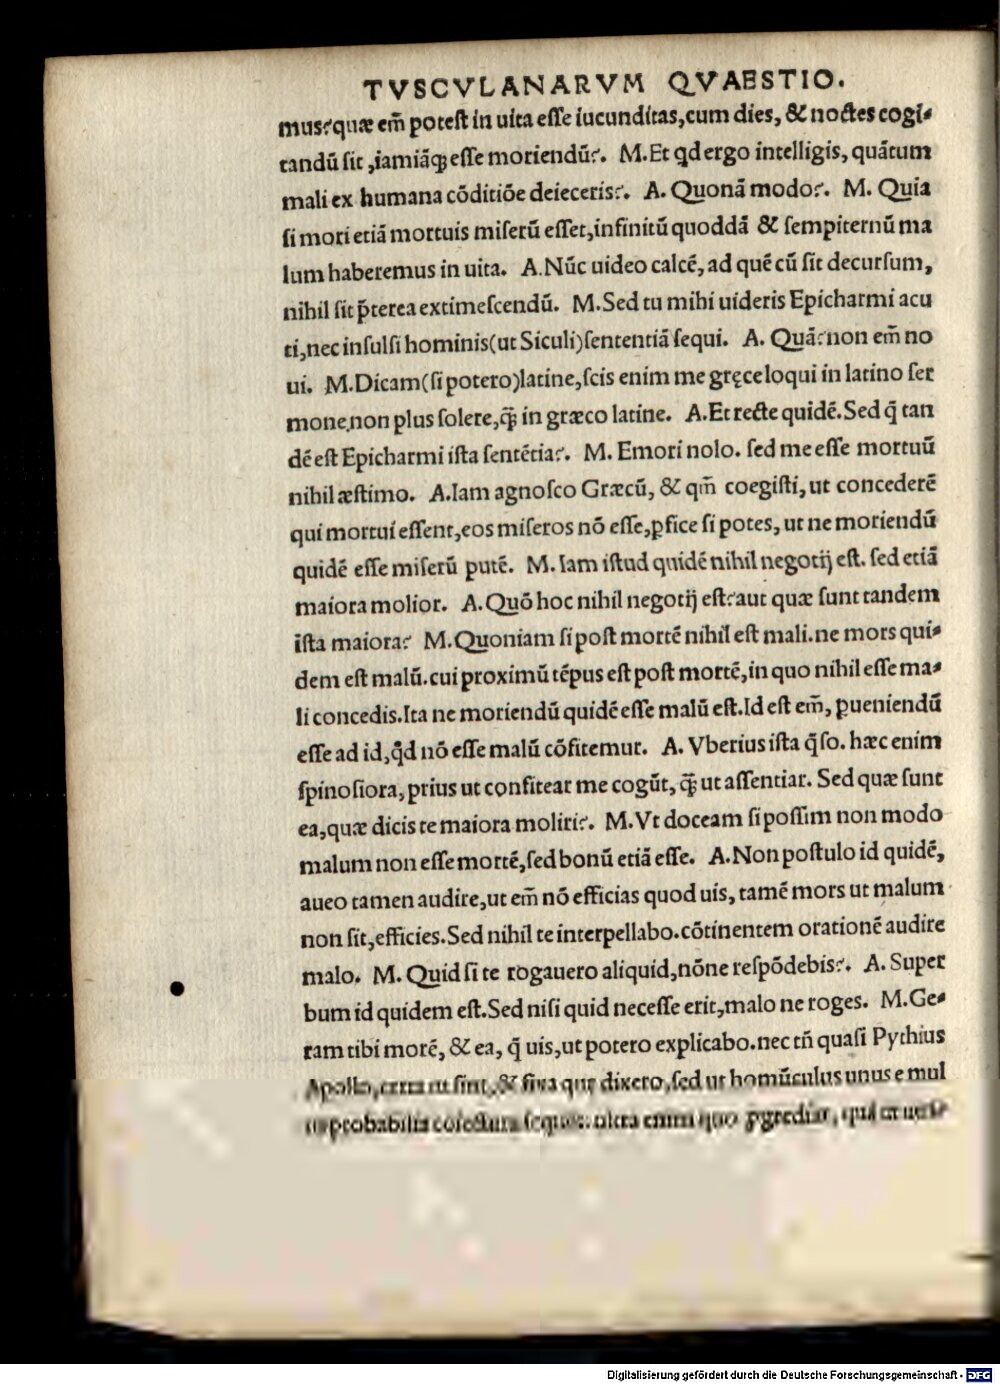 TVSCVLANARVM QVAESTIO.
mus?quæ em̃ potest in uita esse iucunditas,cum dies, & noctes cogi-
tandũ sit ,iamiãq; esse moriendũ?. M.Et qd ergo intelligis, quãtum
mali ex humana cõditiõe deieceris?. A. Quonã modo?. M. Quia
si mori etiã mortuis miserũ esset,infinitũ quoddã & sempiternũ ma
lum haberemus in uita. A.Nũc uideo calcẽ, ad quẽ cũ sit decursum,
nihil sit p̃terea extimescendũ. M.Sed tu mihi uideris Epicharmi acu
ti,nec insulsi hominis(ut Siculi)sententiã sequi. A. Quã?non em̃ no
ui. M.Dicam(si potero)latine,scis enim me gręce loqui in latino ser
mone,non plus solere,q̃; in græco latine. A.Et recte quidẽ.Sed q̃ tan
dẽ est Epicharmi ista sentẽtia?. M. Emori nolo. sed me esse mortuũ
nihil æstimo. A.Iam agnosco Græcũ, & qm̃ coegisti, ut concederẽ
qui mortui essent,eos miseros nõ esse,ꝑfice si potes, ut ne moriendũ
quidẽ esse miserũ putẽ. M. Iam istud quidẽ nihil negotij est. sed etiã
maiora molior. A.Quõ hoc nihil negotij est?aut quæ sunt tandem
ista maiora? M.Quoniam si post mortẽ nihil est mali.ne mors qui-
dem est malũ.cui proximũ tẽpus est post mortẽ,in quo nihil esse ma-
li concedis.Ita ne moriendũ quidẽ esse malũ est.Id est em̃, ꝑueniendũ
esse ad id,q̃d nõ esse malũ cõfitemur. A. Vberius ista q̃so. hæc enim
spinosiora, prius ut confitear me cogũt, q̃; ut assentiar. Sed quæ sunt
ea,quæ dicis te maiora moliri?. M.Vt doceam si possim non modo
malum non esse mortẽ,sed bonũ etiã esse. A.Non postulo id quidẽ,
aueo tamen audire,ut em̃ nõ efficias quod uis, tamẽ mors ut malum
non sit,efficies.Sed nihil te interpellabo.cõtinentem orationẽ audire
malo. M. Quid si te rogauero aliquid,nõne respõdebis?. A. Super
bum id quidem est.Sed nisi quid necesse erit,malo ne roges. M.Ge-
ram tibi morẽ, & ea, q̃ uis,ut potero explicabo.nec tñ quasi Pythius
Apollo,certa ut sint,& fixa quę dixero,sed ut homũculus unus e mul
tis probabilia cõiectura sequens. ultra enim quo ꝓgrediar,